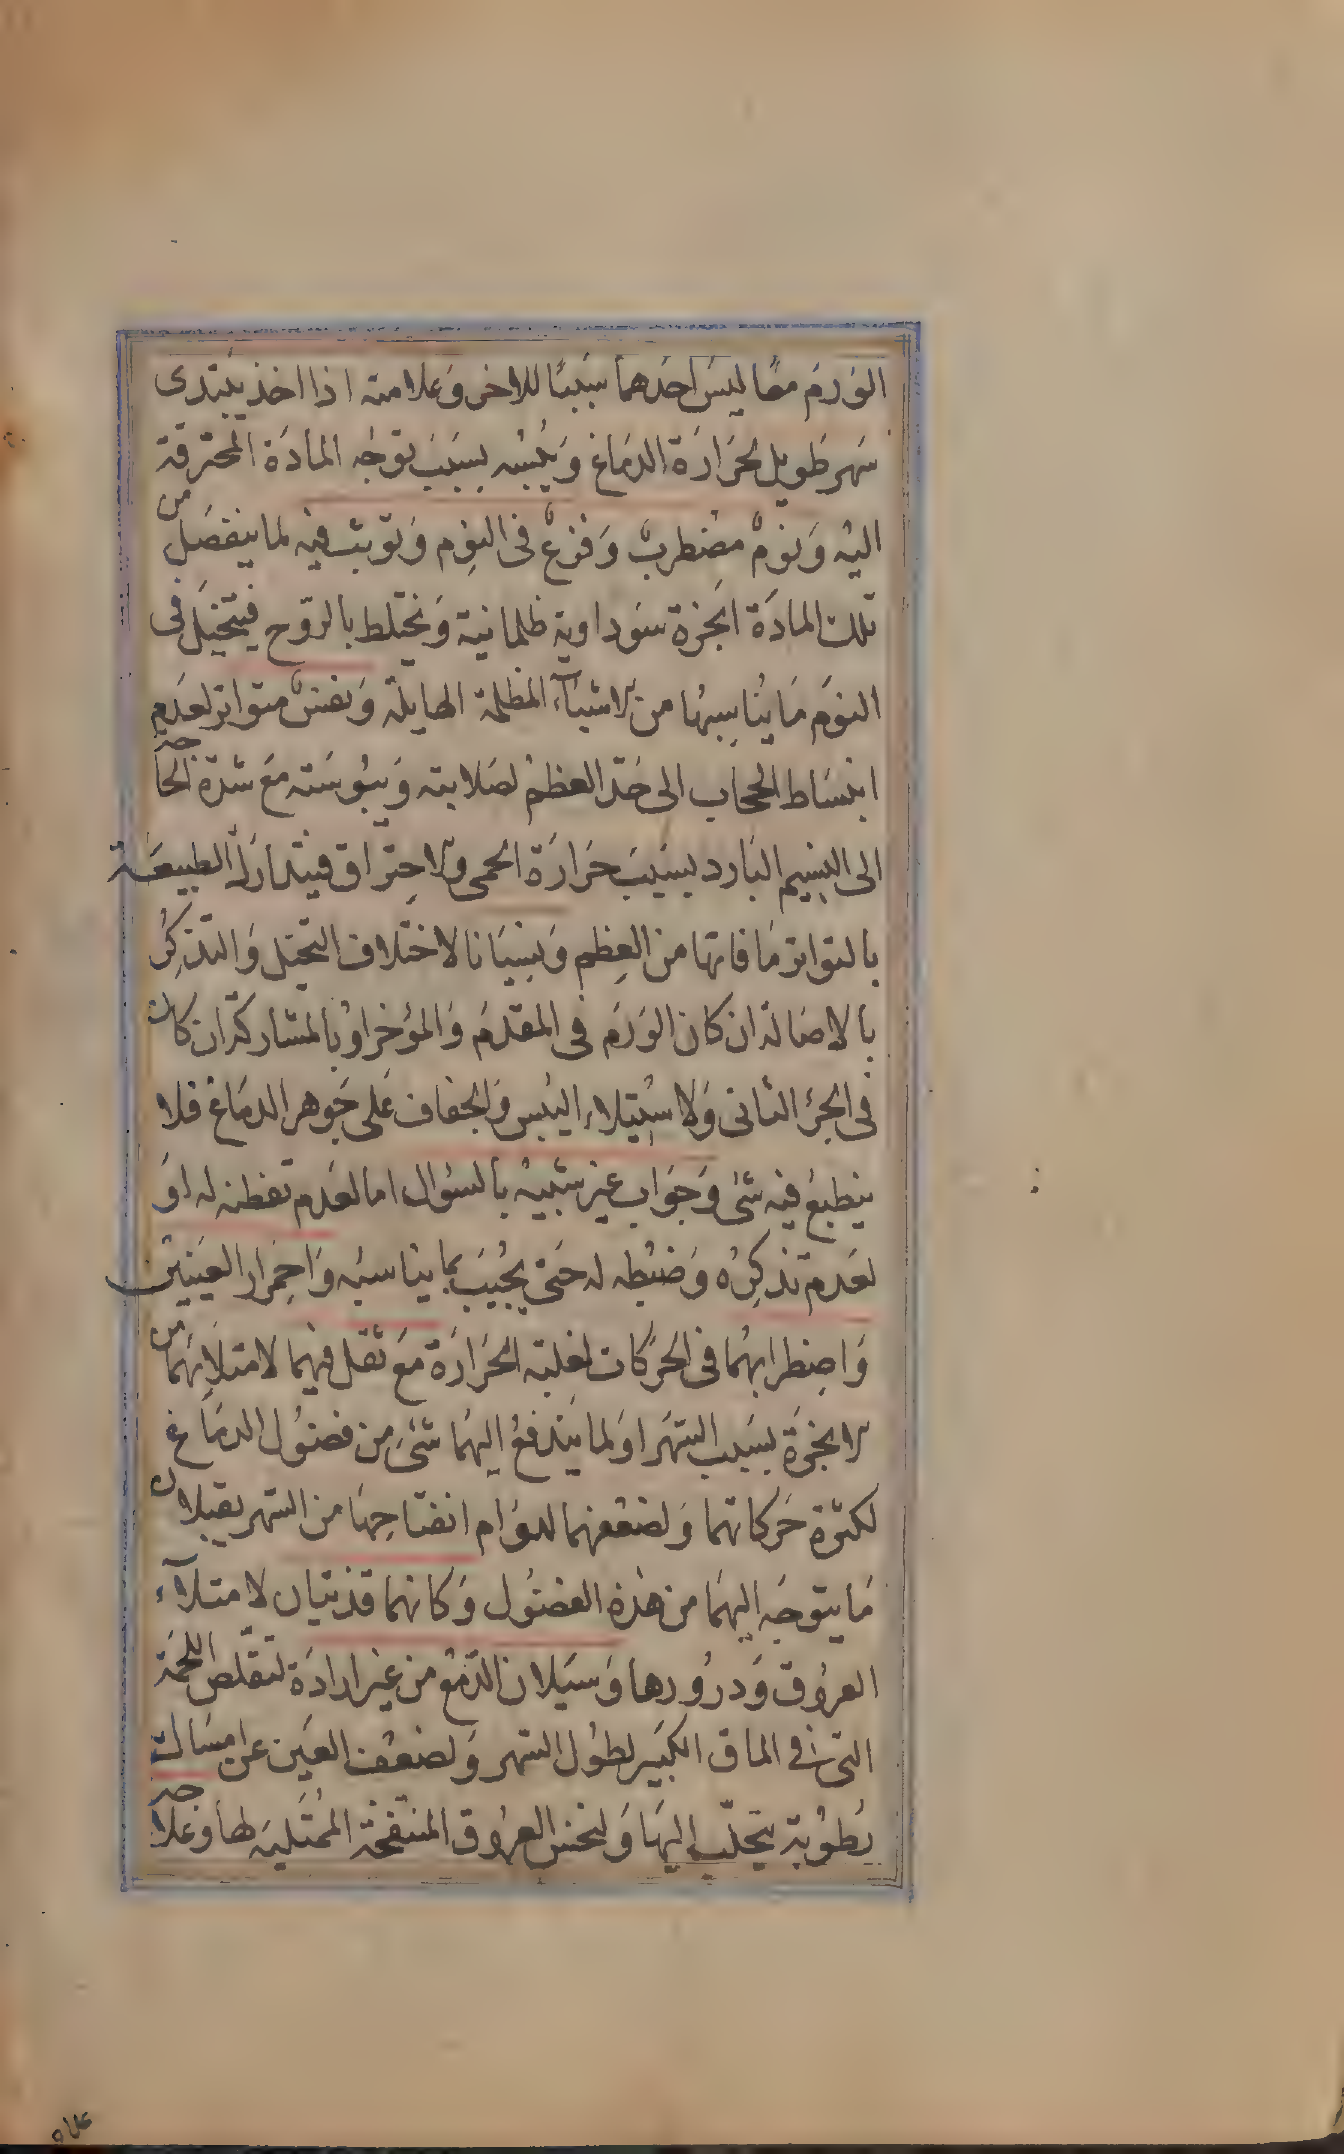 الوَرَمَ معًا ليسَ احَدهما سَببًا للاخر وَعلامته اذا اخذ يَبتدى
سَهر طَويل لحَرَارَة الدمَاغ وَيُبسه بسَبَبَ توجّه المادَة المحترقة
اليْه وَنومٌ مضطربٌ وَفزعٌ فى النوم وَتوثب فيه لما ينفصَل من
تلك المادَة ابخرة سَوداوية ظلمانية وَتختلط بالروّح فيتخيَل فى
النوَم مَا يُنَاسبهُا من الاشيَآء المظلمة الهايلة وَنفسٌ متواتر لعَدَم
انبسَاط الحجاب الى حَدّ العظمْ لصَلابته وَيبُوسَته مَع شدّة الحاجة
الى النسيم البَارد بسَبَبَ حَرَارَة الحمى والاحِترَاق فيتدارَك الطبيعَة
بالتواتر مَا فاتها من العِظم وَنسيَانا لاختلاف التخيّل وَالتذكِرّ
بالاصَالة ان كان الوَرَم فى المقدم وَالمؤخر اوْ بالمشاركة ان كان
فى الجزء الثانى وَلاسْتيلاء اليُبس وَالجفاف عَلى جَوهر الدمَاغ فلا
ينطبعُ فيه شئ وَجوَاب غير شبيْه بالسؤال اما لعَدم تفطنه له اوَ
لعَدم تذكِرُه وَضبْطه له حَتى يجُيَب بما يناسبَه وَاحمِرَار العَينينْ
وَاضِطرابهُما فى الحَرَكات لغلبة الحَرَارَة مَعَ ثقل فيهما لامتلائِهَما من
الابخرَة بسَبَب السّهَر اوَ لما يَندفعُ اليهَما شئ مِن فضوُل الدمَاغ
لكثرة حَركاتهما وَلضعْفهما لدوَام انفتاحِهَا من السّهر يقبلان
مَا يتوجَه اليهَما من هٰذه الفضوُل وَكانهما قذيتان لامتلآء
العرُوق وَدرُورها وَسَيَلان الدّمْع من غيْر ارادَة لتقّلص اللّحمة
التى فى الماق الكبَير لطوُل السّهر وَلضعْف العَين عن امسَاك
رُطوُبة يتحلّب اليهَا وَلنخس العرُوق المنتفخة الممُتَليَة لها وَعَلاج